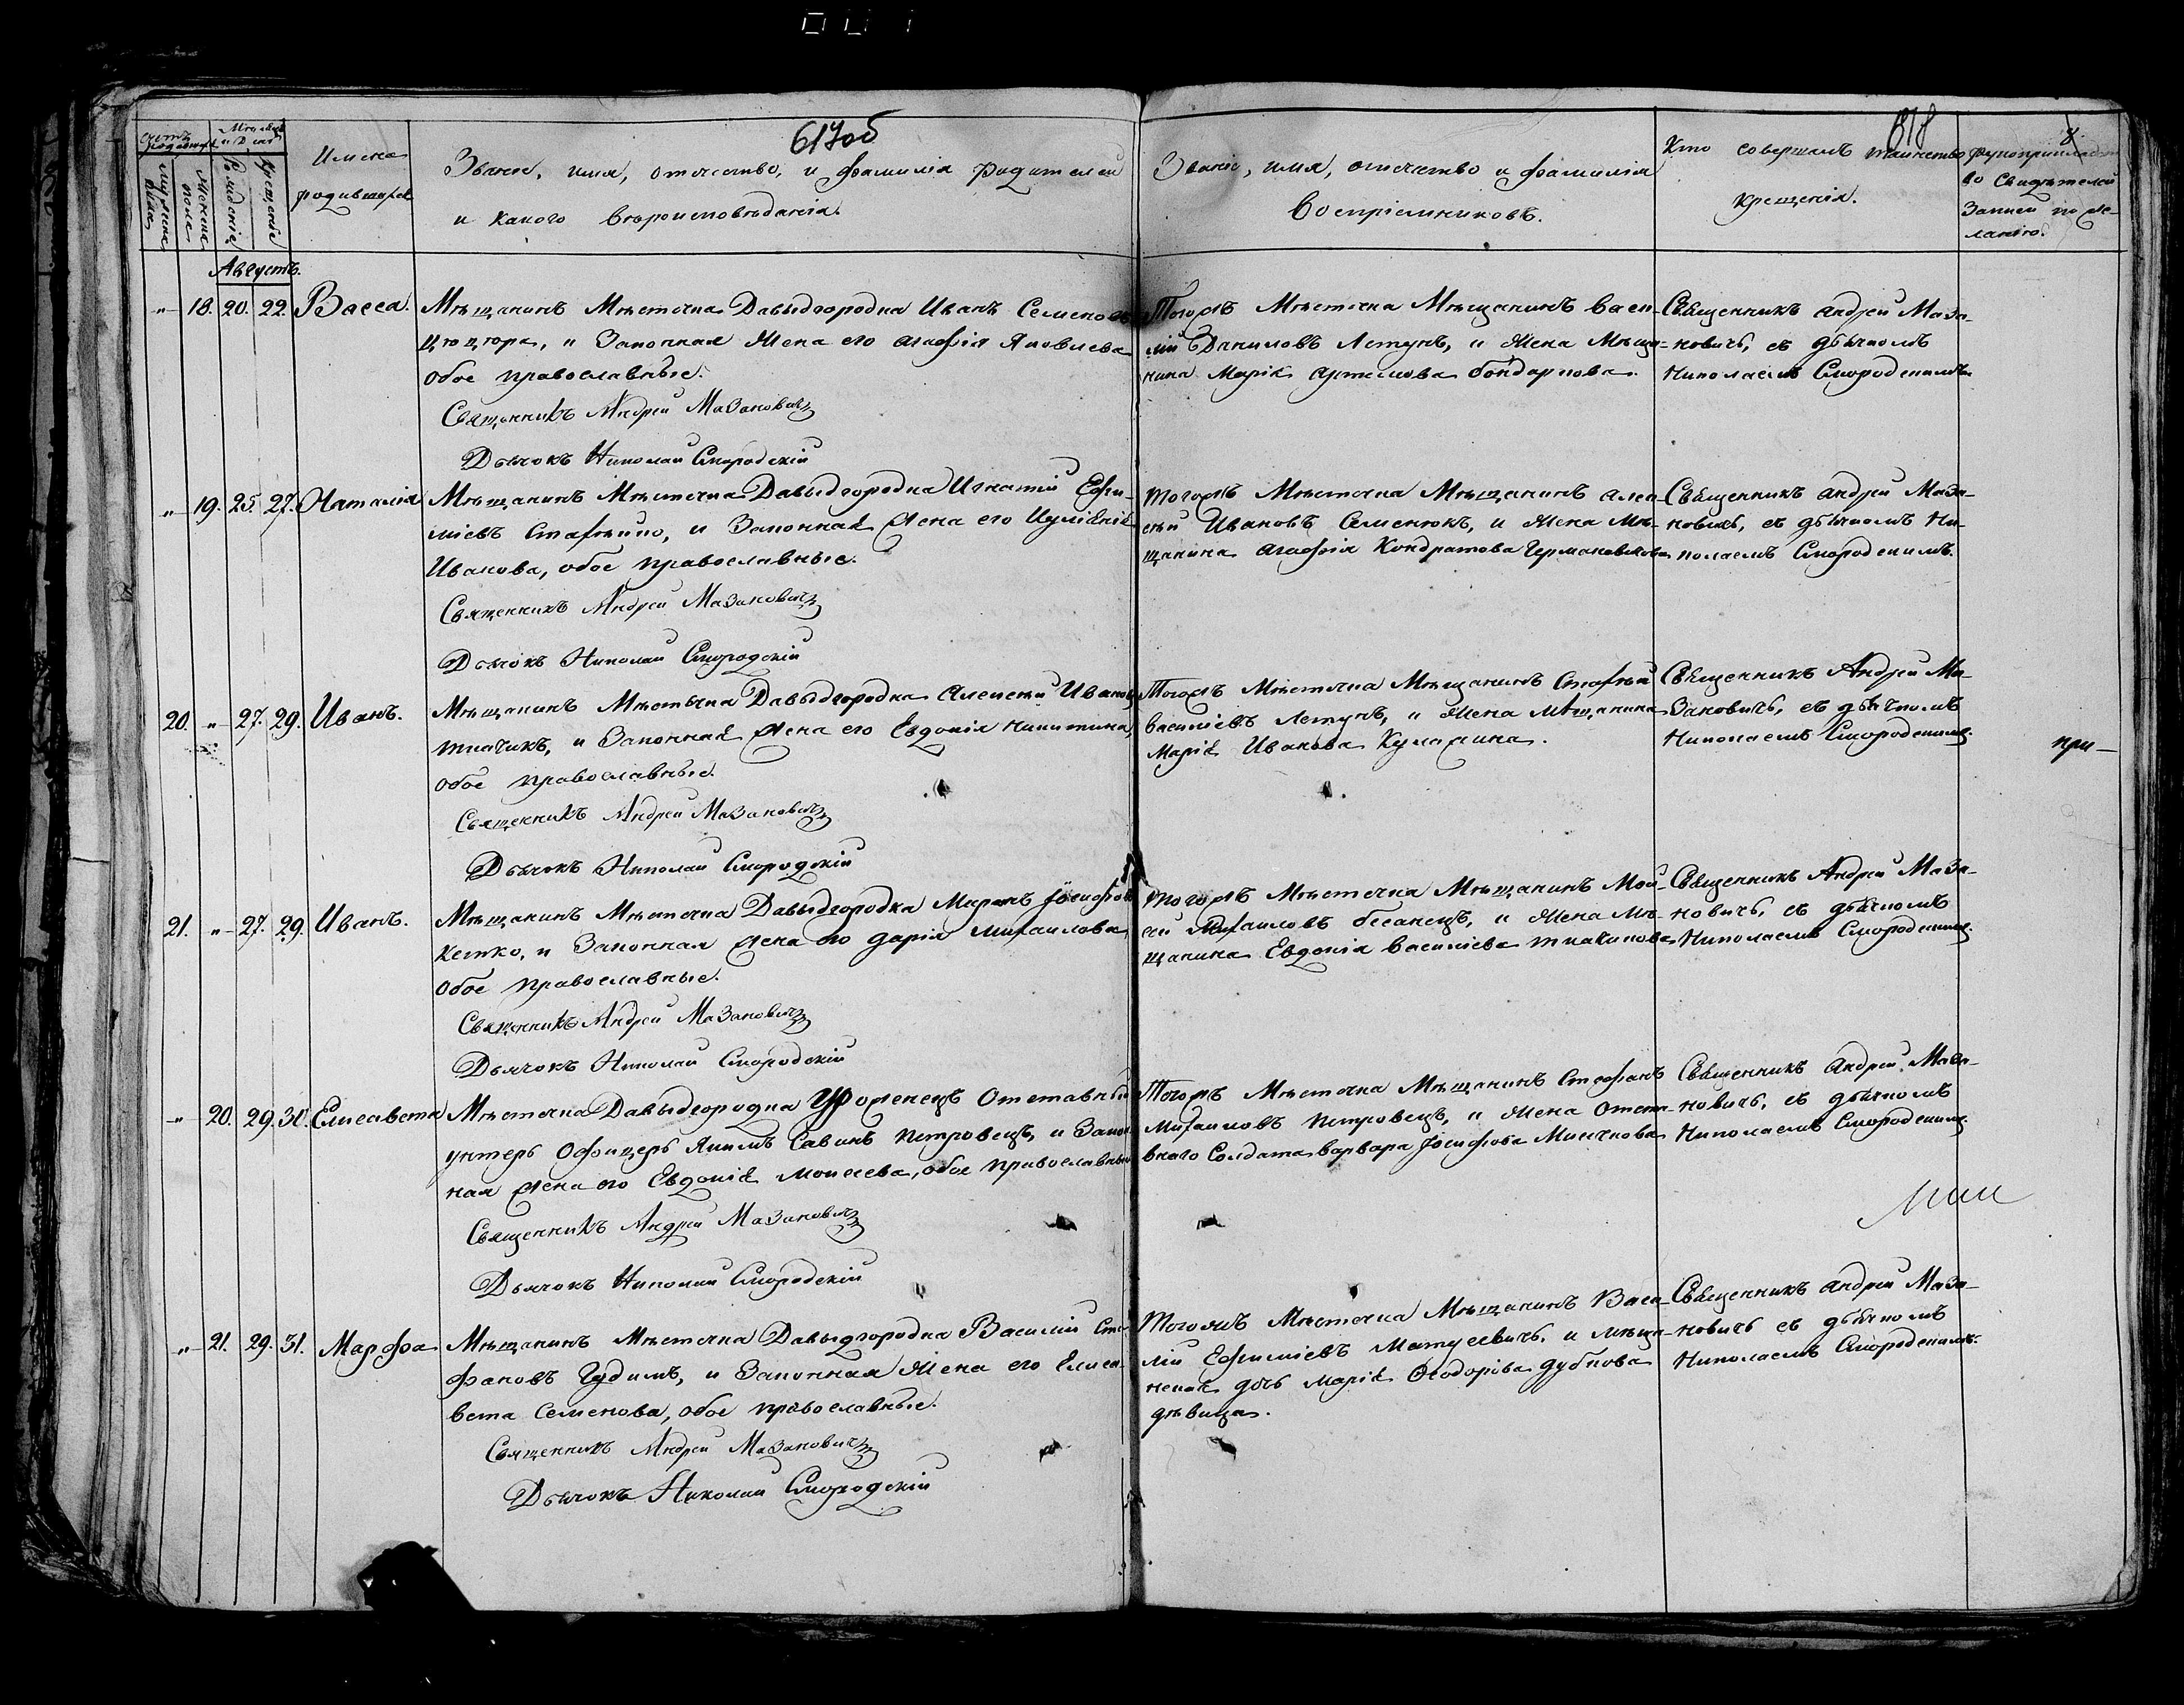 617об
818
8
Счетъ родившихся
Мужеска пола
Женска пола
Мѣсяцъ и День
Рожденіе
Крещеніе
Имена
родившихся
Званіе, имя, отчество, и фамилія родителей
и какого вѣроисповѣданія.
Званіе, имя, отчество и фамилія
Воспріемниковъ.
Кто совершалъ таинство
крещенія.
Рукоприкладст
во свидѣтелей
записи по же-
ланію.
Августъ.
„ 18. 20. 22. Васса.
Мѣщанинъ Мѣстечка Давыдгородка Иванъ Семеновъ
Цюцюра, и Законная Жена его Агафія Яковлева
обое православные.
Священникъ Андрей Мазановичъ
Дьячокъ Николай Смородскій
Тогожъ Мѣстечка Мѣщанинъ Васи-
лій Даниловъ Летунъ, и Жена Мѣща-
нина Марія Артемова Бондаркова.
Священникъ Андрей Маза-
новичъ, съ дьячкомъ
Николаемъ Смородскимъ.
„ 19. 25. 27. Наталія
Мѣщанинъ Мѣстечка Давыдгородка Игнатій Ефи-
міевъ Стахейко, и Законная Жена его Иуліянія
Иванова, обое православные.
Священникъ Андрей Мазановичъ
Дьячокъ Николай Смородскій
Тогожъ Мѣстечка Мѣщанинъ Алек-
сѣй Ивановъ Семенюкъ, и Жена Мѣ-
щанина Агафія Кондратова Германовичова
Священникъ Андрей Маза-
новичъ, съ дьячкомъ Ни-
колаемъ Смородскимъ.
20. „ 27. 29. Иванъ.
Мѣщанинъ Мѣстечка Давыдгородка Алексѣй Ивановъ
Ткачикъ, и Законная Жена его Евдокія Никитина,
обое православные.
Священникъ Андрей Мазановичъ
Дьячокъ Николай Смородскій
Тогожъ Мѣстечка Мѣщанинъ Стахѣй
Василіевъ Летунъ, и Жена Мѣщанина
Марія Иванова Кулагина.
Священникъ Андрей Ма-
зановичъ, съ дьячкомъ
Николаемъ Смородскимъ.
при-
21. „ 27. 29. Иванъ.
Мѣщанинъ Мѣстечка Давыдгородка Миронъ Іосифовъ
Кетко, и Законная Жена его Дарія Михаилова
обое православные.
Священникъ Андрей Мазановичъ
Дьячокъ Николай Смородскій
Тогожъ Мѣстечка Мѣщанинъ Мои-
сей Михаиловъ Бесанецъ, и Жена Мѣ-
щанина Евдокія Василіева Ткачикова
Священникъ Андрей Маза-
новичъ, съ дьячкомъ
Николаемъ Смородскимъ.
„ 20. 29. 30. Елисавета
Мѣстечка Давыдгородка Уроженецъ Отставный
унтеръ Офицеръ Якимъ Савинъ Петровецъ, и Закон-
ная Жена его Евдокія Моисеева, обое православные
Священникъ Андрей Мазановичъ
Дьячокъ Николай Смородскій
Тогожъ Мѣстечка Мѣщанинъ Стефанъ
Михаиловъ Петровецъ, и Жена Отста-
внаго Солдата Варвара Іосифова Минчкова
Священникъ Андрей Маза-
новичъ, съ дьячкомъ
Николаемъ Смородскимъ.
„ 21. 29. 31. Марфа
Мѣщанинъ Мѣстечка Давыдгородка Василій Сте-
фановъ Гудимъ, и Законная Жена его Елиса-
вета Семенова, обое православные.
Священникъ Андрей Мазановичъ
Дьячокъ Николай Смородскій
Тогожъ Мѣстечка Мѣщанинъ Васи-
лій Ефиміевъ Матусевичъ, и мѣща-
нская дочь Марія Ѳеодорова Дубкова
дѣвица.
Священникъ Андрей Маза-
новичъ съ дьячкомъ
Николаемъ Смородскимъ.